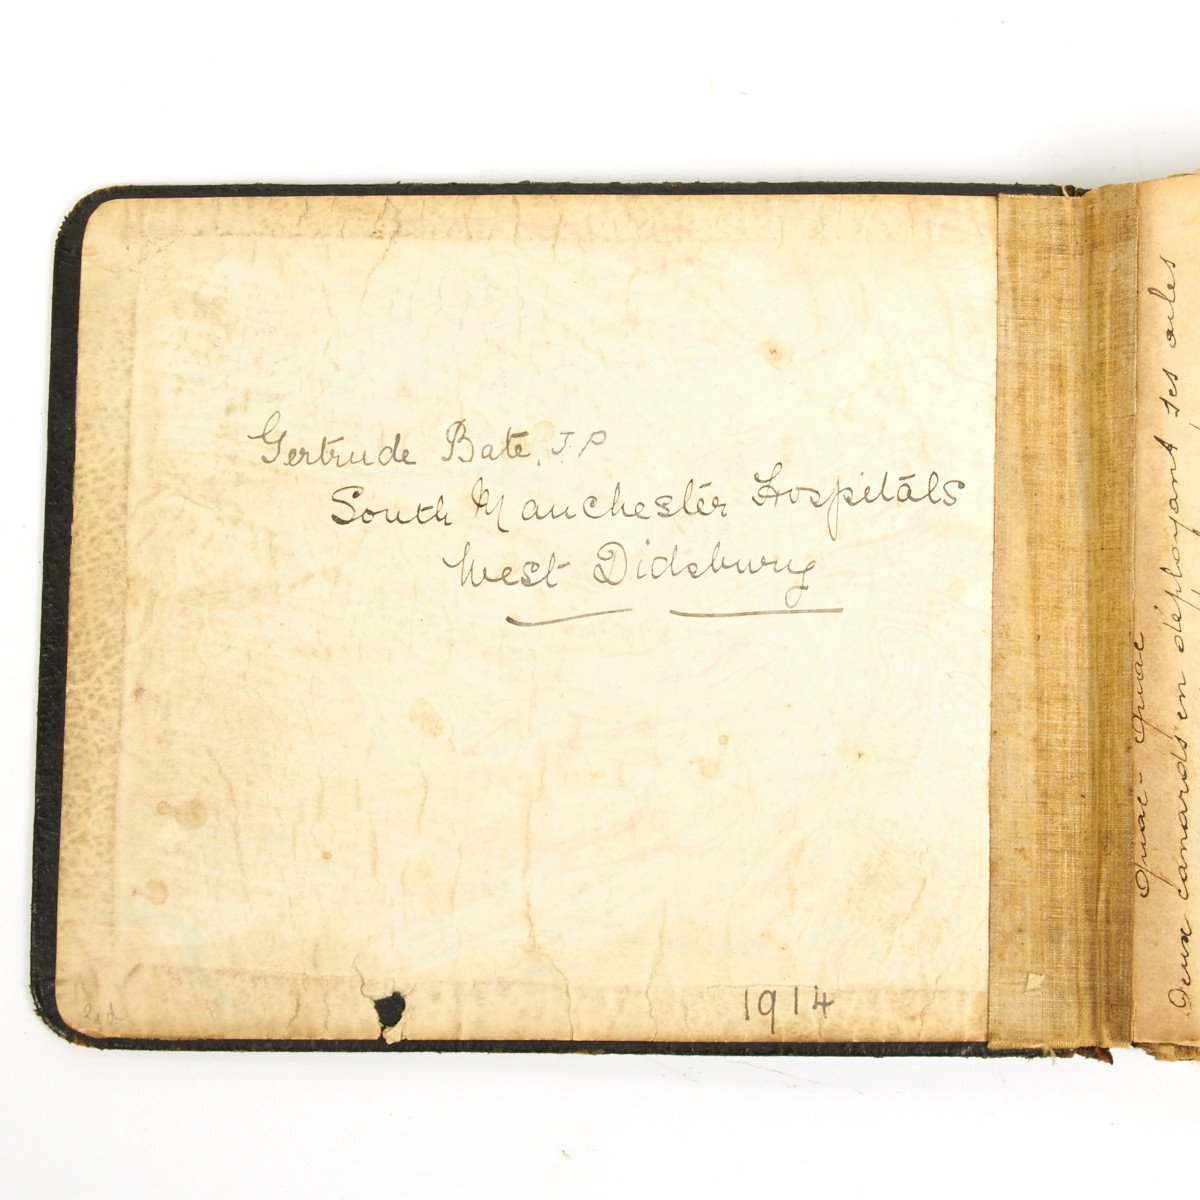 Gertrude Bate, J.P
South Manchester Hospitals
West Didsbury
1914
Quac - Quac
Deux canards en déployant ses ailes